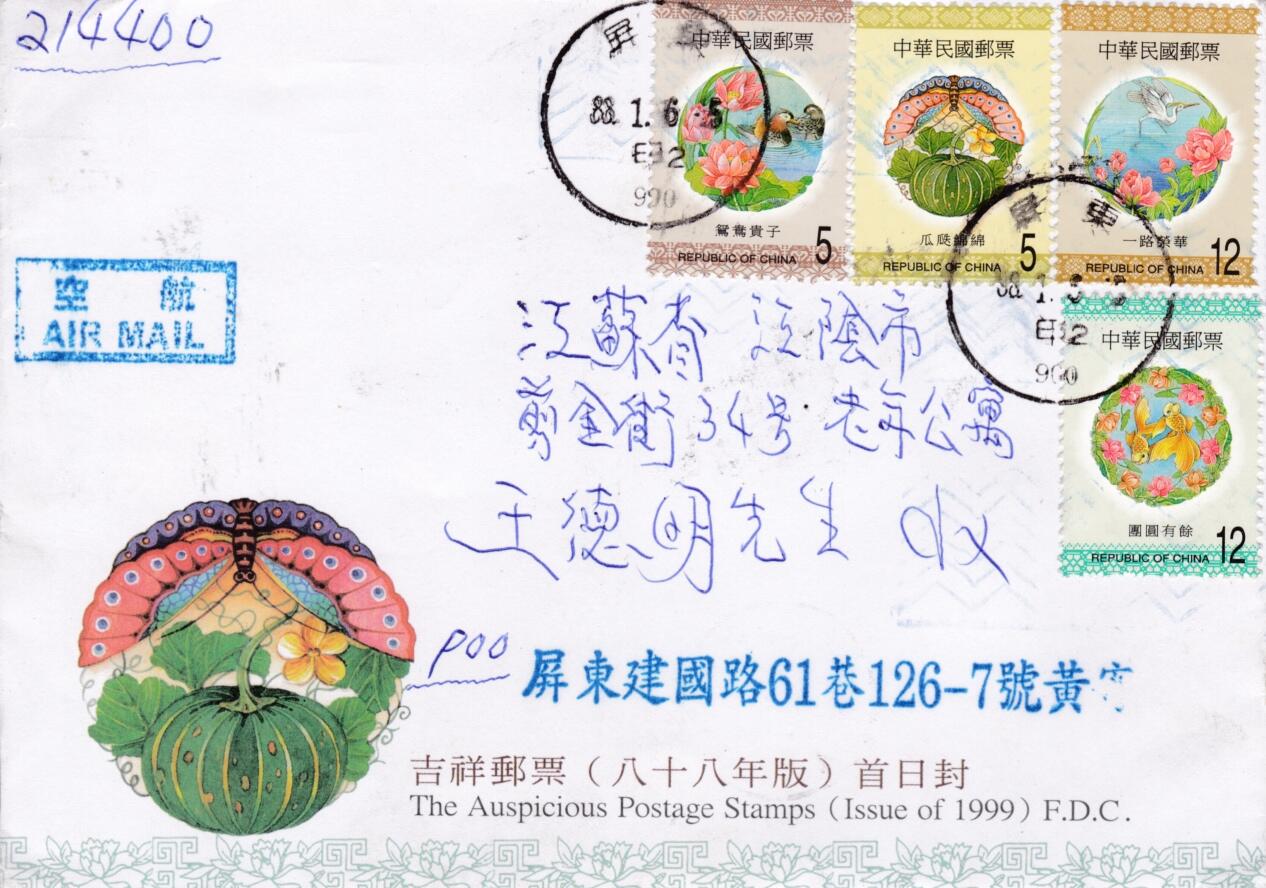 214400
屏東
88.1.6
甲2
900
中華民國郵票
鴛鴦貴子
5
REPUBLIC OF CHINA
中華民國郵票
瓜瓞綿綿
5
REPUBLIC OF CHINA
中華民國郵票
一路榮華
12
REPUBLIC OF CHINA
屏東
88.1.
甲2
900
中華民國郵票
團圓有餘
12
REPUBLIC OF CHINA
航空
AIR MAIL
江蘇省 江陰市
剪金街34号 老年公寓
王德明先生 收
P00
屏東建國路61巷126-7號黃
吉祥郵票（八十八年版）首日封
The Auspicious Postage Stamps (Issue of 1999) F.D.C.